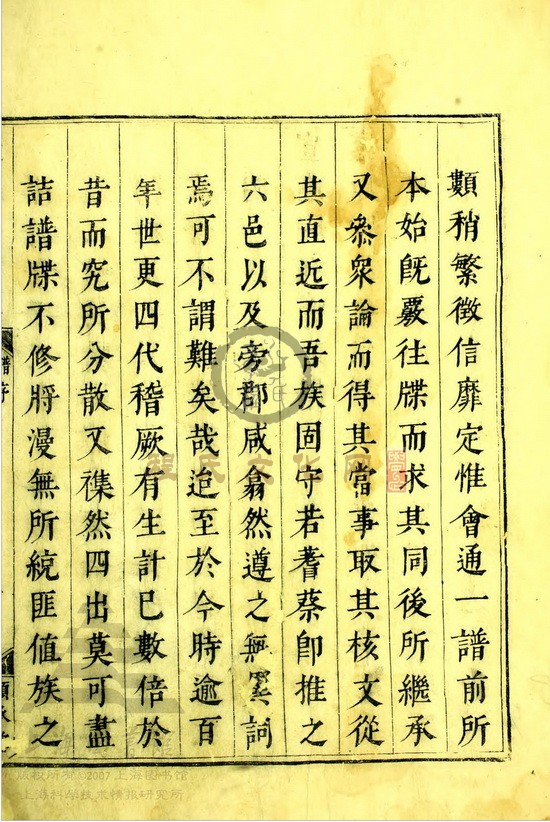 顆稍繁徵信靡定惟會通一譜前所
本始旣覈往牒而求其同後所繼承
又叅衆論而得其當事取其核文從
其直近而吾族固守若蓍蔡卽推之
六邑以及旁郡咸翕然遵之無異詞
焉可不謂難矣哉迨至於今時逾百
年世更四代稽厥有生計已數倍於
昔而究所分散又襍然四出莫可盡
詰譜牒不修將漫無所統匪值族之
譜序
程氏文化网
版权所有 2007 上海图书馆
上海科学技术情报研究所